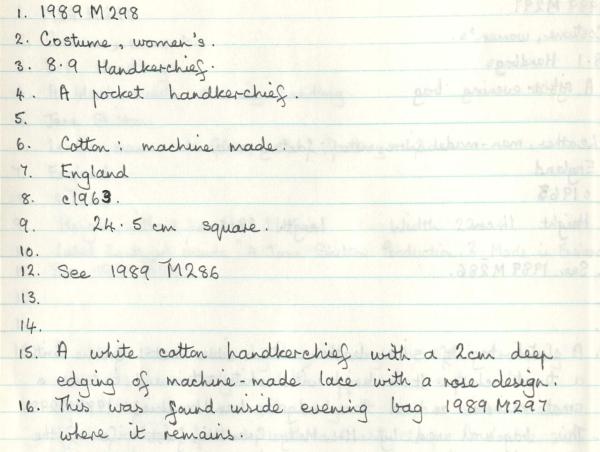 1. 1989 M 298
2. Costume, women's.
3. 8.9 Handkerchief.
4. A pocket handkerchief.
5.
6. Cotton: machine made.
7. England
8. c1963.
9. 24.5 cm square.
10.
12. See 1989 M286
13.
14.
15. A white cotton handkerchief with a 2cm deep
edging of machine-made lace with a rose design.
16. This was found inside evening bag 1989 M297
where it remains.